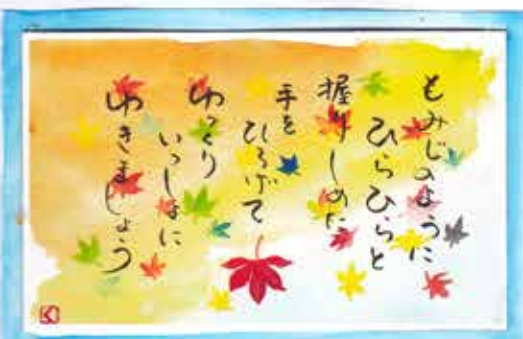 もみじのように
ひらひらと
握りしめた
手を
ひろげて
ゆっくり
いっしょに
ゆきましょう